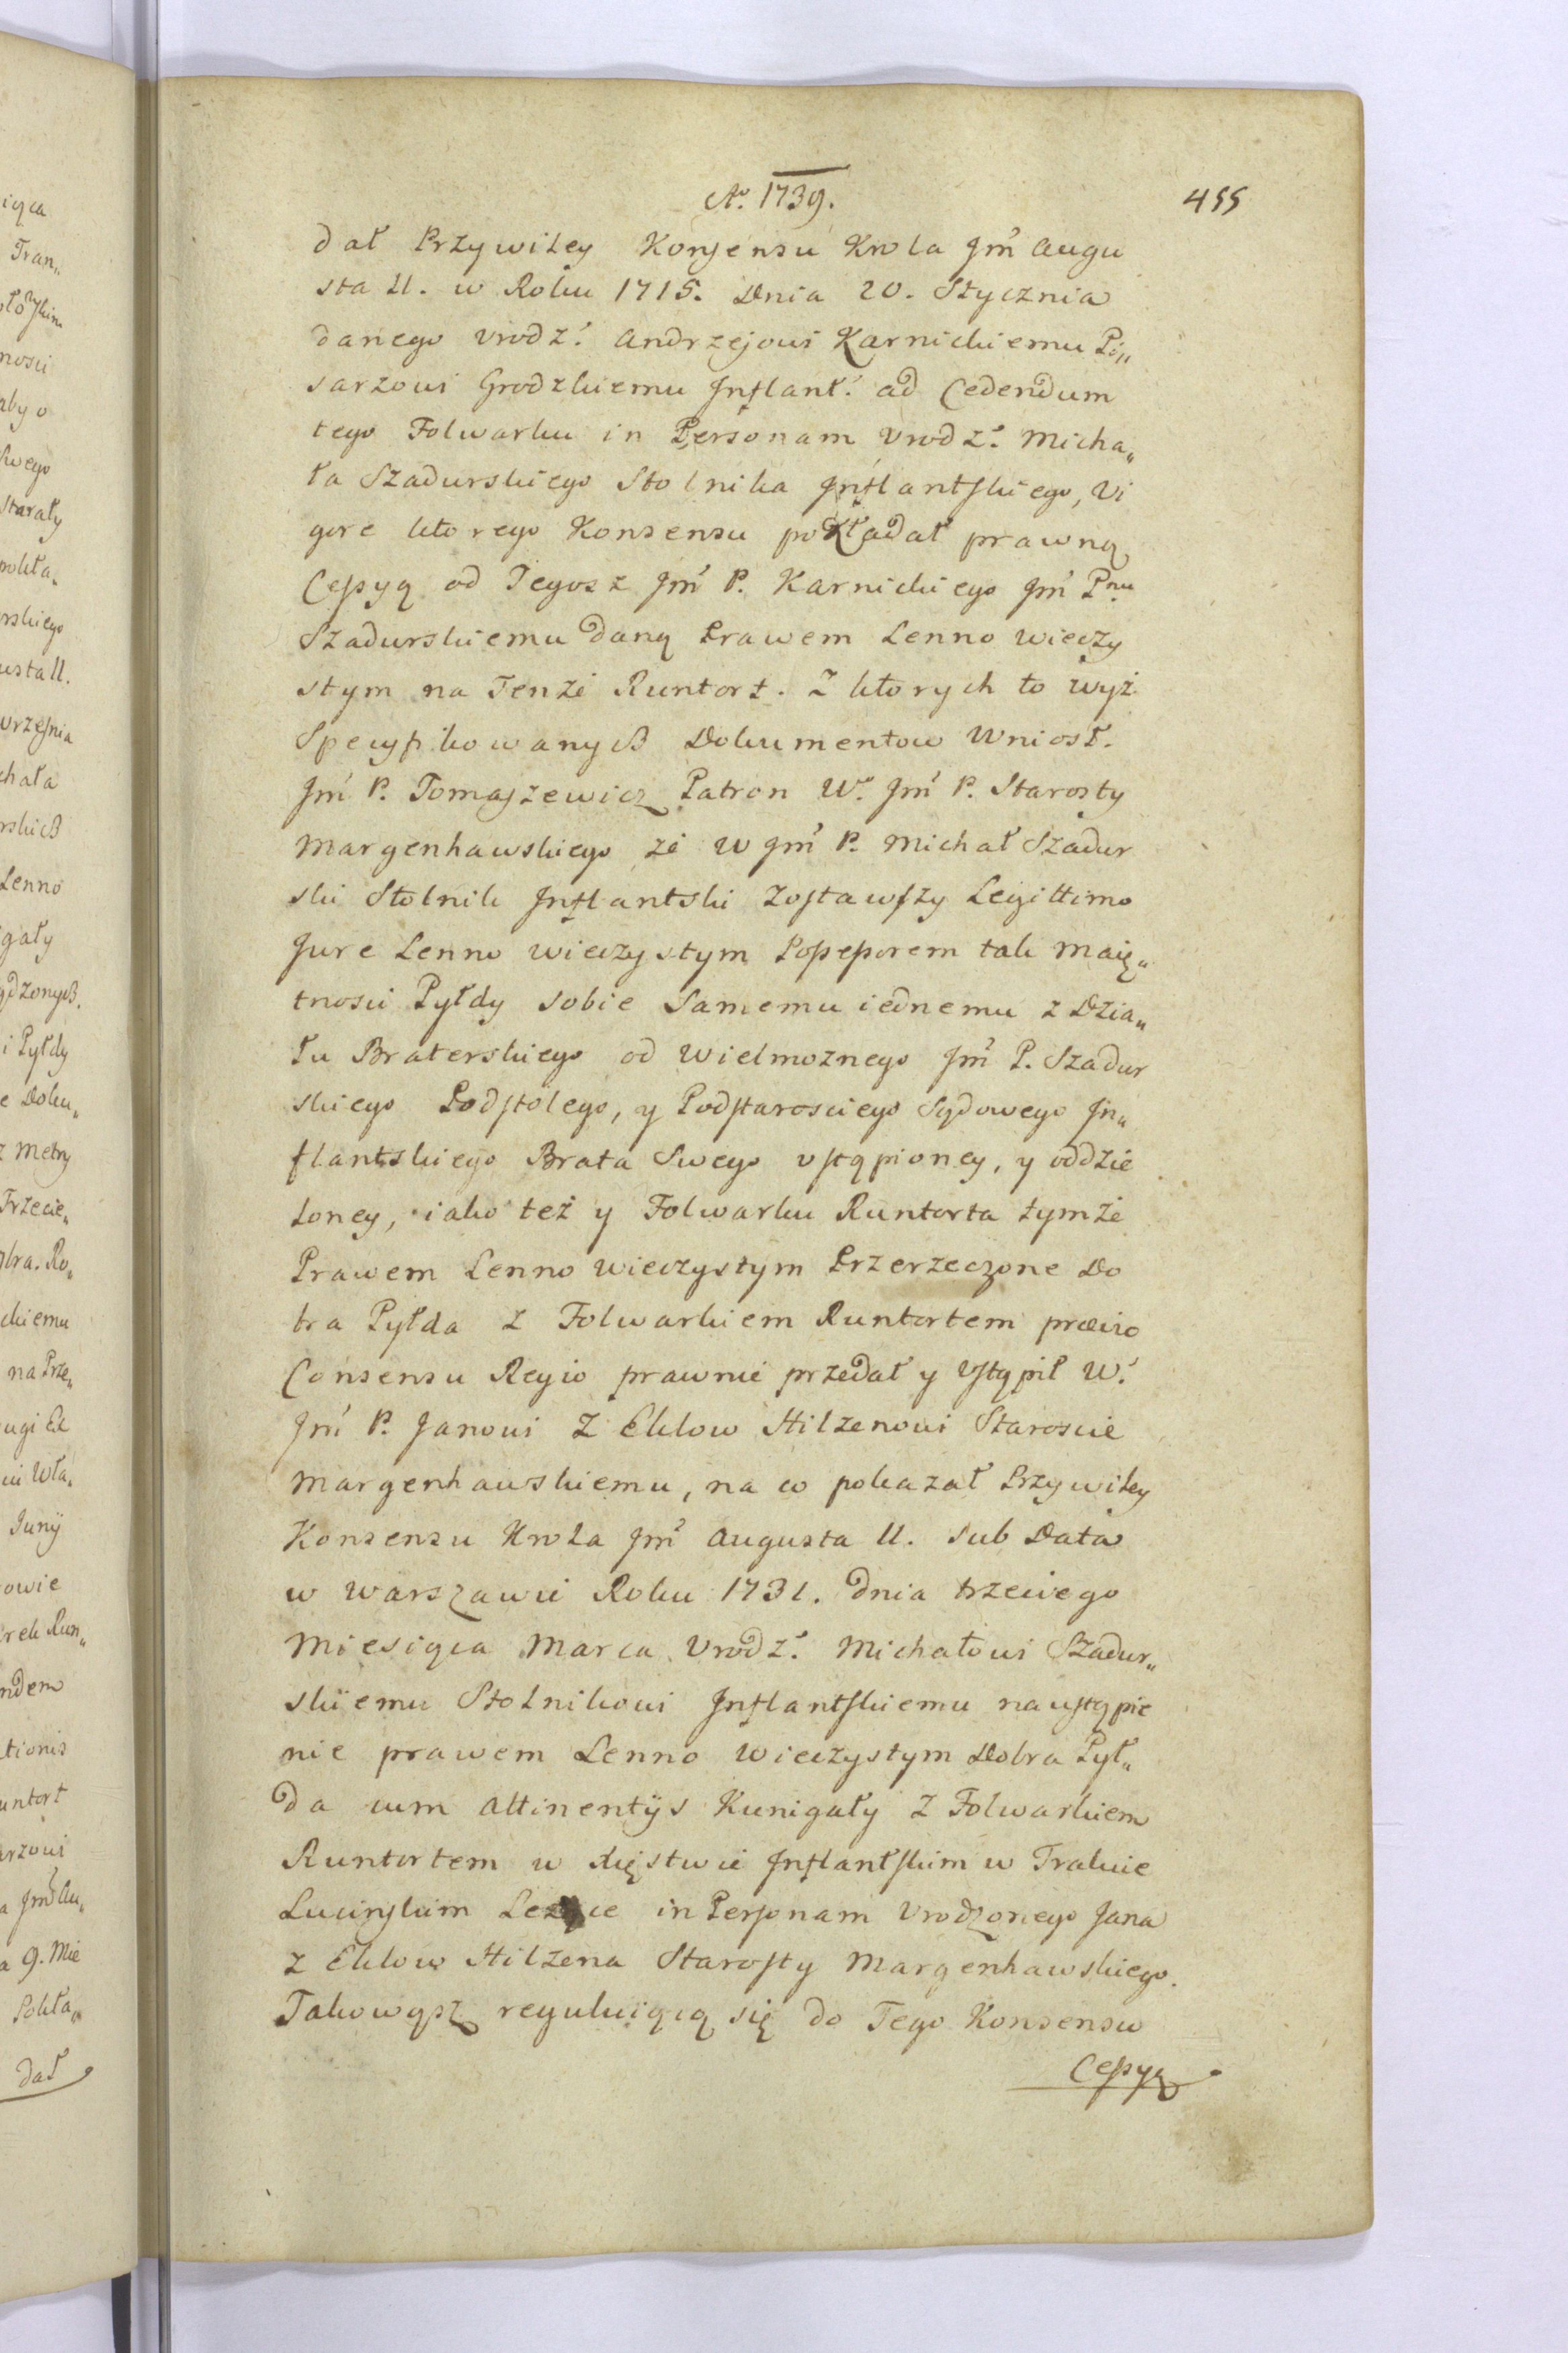 Ao. 1739.
455
dał Przywiley Konsensu Krola Jmć Augu
sta II. w Roku 1715. Dnia 20. Stycznia
danego Vrodz: Andrzejowi Karnickiemu Pi„
sarzowi Grodzkiemu Inflant: ad Cedendum
tego Folwarku in Personam Vrodz: Micha„
ła Szadurskiego Stolnika Inflantskiego, Vi
gore ktorego Konsensu pokładał prawną
Cessyą od Tegosz Jmć P. Karnickiego Jmć Pnu
Szadurskiemu daną Prawem Lenno wieczy
stym na Tenże Runtort. Z ktorych to wyż
Specyfikowanych Dokumentow Wniosł.
Jmć P. Tomaszewicz Patron W. Jmć P. Starosty
Margenhawskiego że W Jmć P. Michał Szadur
ski Stolnik Inflantski Zostawszy Legittimo
Jure Lenno wieczystym Possessorem tak Maię„
tnosci Pyłdy sobie Samemu iednemu z Dzia„
łu Braterskiego od Wielmoznego Jmć P. Szadur
skiego Podstolego, y Podstarosciego Sądowego In„
flantskiego Brata Swego vstąpioney, y oddzie
loney, iako też y Folwarku Runtorta tymże
Prawem Lenno Wieczystym Przerzeczone Do
bra Pyłda z Folwarkiem Runtortem prævio
Consensu Regio prawnie przedał y Vstąpił W.
Jmć P. Janowi Z Eklow Hilzenowi Staroscie
Margenhauskiemu, na co pokazał Przywiley
Konsensu Krola Jmć Augusta II. sub Data
w Warszawie Roku 1731. dnia trzeciego
Miesiąca Marca Vrodz: Michałowi Szadur„
skiemu Stolnikowi Inflantskiemu na ustąpie
nie prawem Lenno Wieczystym Dobra Pył„
da cum Attinentijs Kunigały z Folwarkiem
Runtortem w Xięstwie Inflantskim w Trakcie
Lucinskim Leżące in Personam Vrodzonego Jana
z Eklow Hilzena Starosty Margenhawskiego.
Takowąsz reguluiącą się do Tego Konsensu
Cessyą